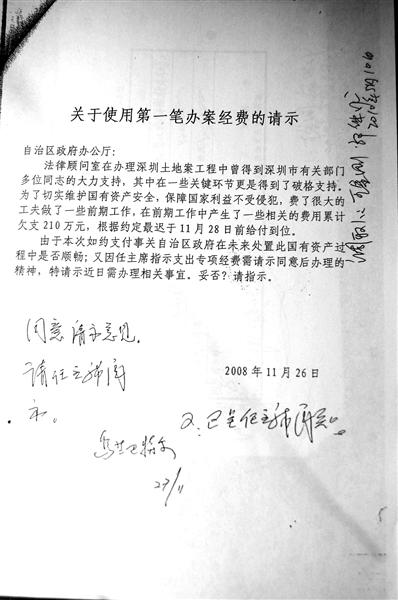 关于使用第一笔办案经费的请示
自治区政府办公厅：
法律顾问室在办理深圳土地案工程中曾得到深圳市有关部门
多位同志的大力支持，其中在一些关键环节更是得到了破格支持。
为了切实维护国有资产安全，保障国家利益不受侵犯，费了很大的
工夫做了一些前期工作，在前期工作中产生了一些相关的费用累计
欠支 210 万元，根据约定最迟于 11 月 28 日前给付到位。
由于本次如约支付事关自治区政府在未来处置此国有资产过
程中是否顺畅；又因任主席指示支出专项经费需请示同意后办理的
精神，特请示近日需办理相关事宜。妥否？请指示。
2008 年 11 月 26 日
同意请示意见。
请任主席阅
示。
乌兰巴特尔
27/11
又：已呈任主席阅知。